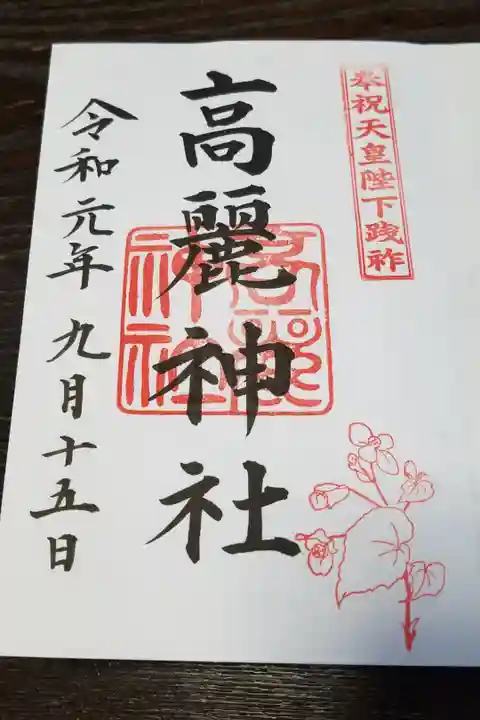 奉祝天皇陛下踐祚
高麗神社
高麗神社
令和元年九月十五日